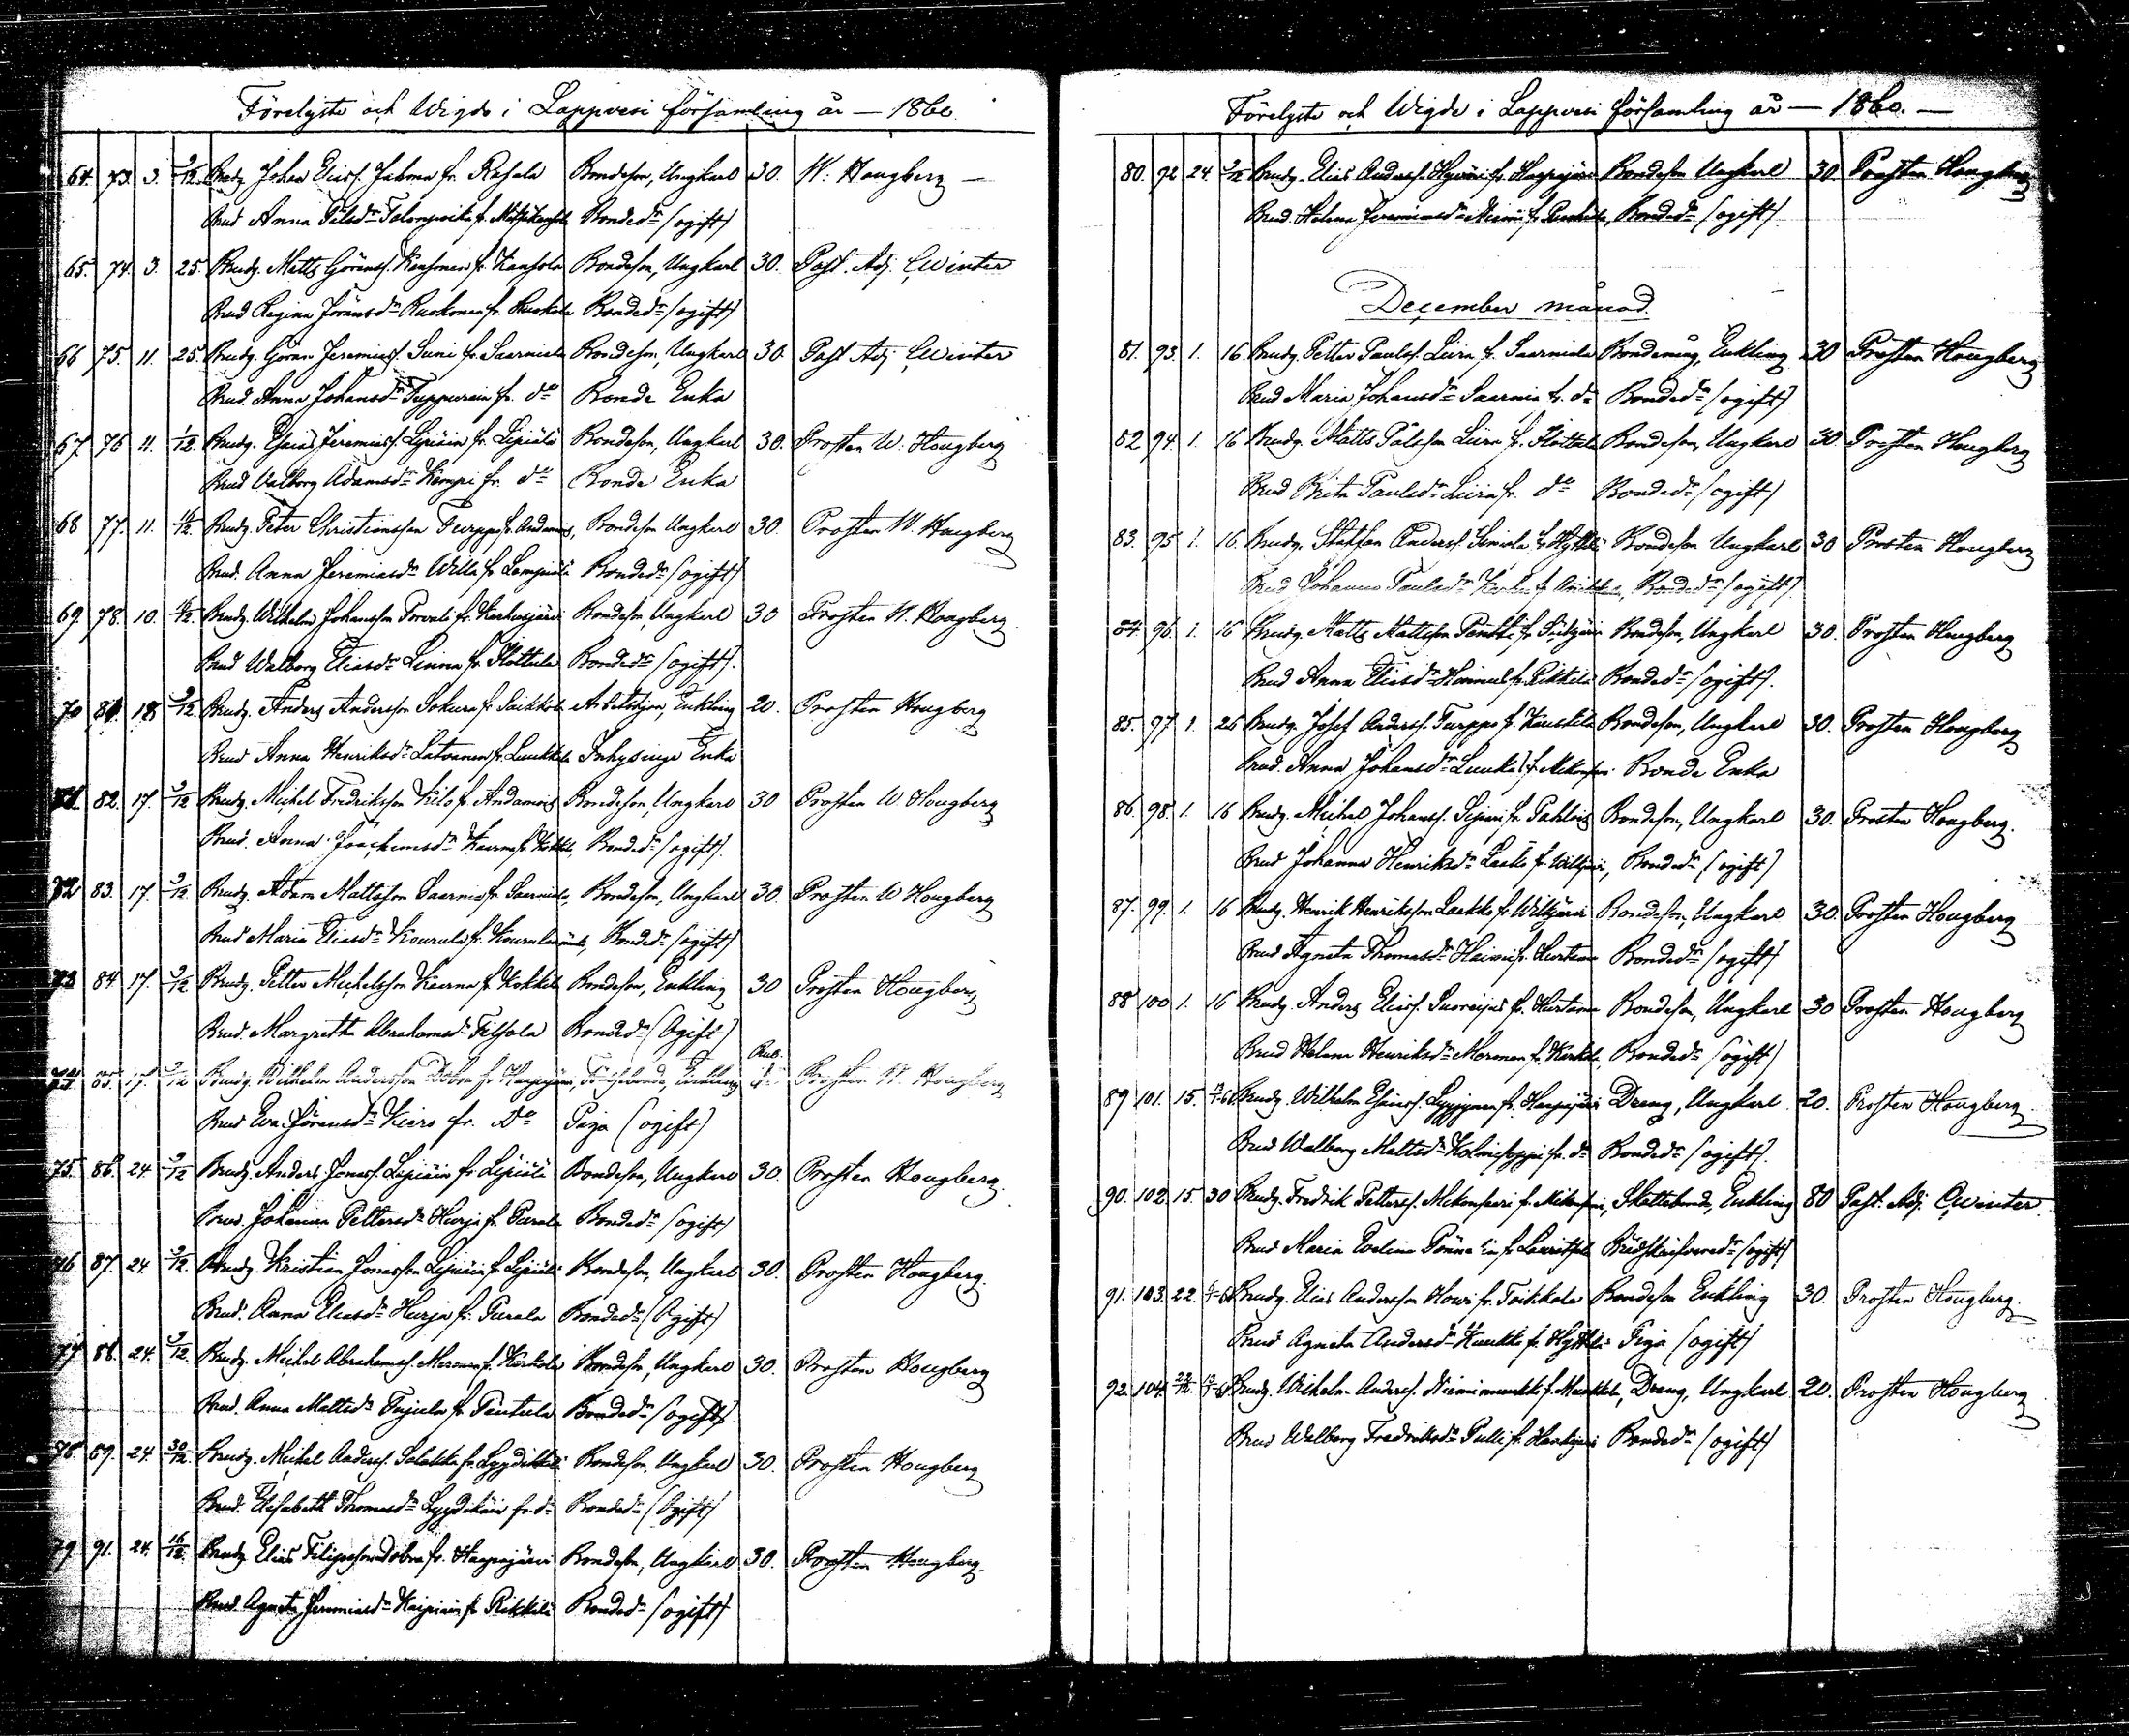 Förelyste och Wigde i Lappvesi församling år — 1860.
64. 73. 3. 9/12. Brudg. Johan Eliass. Juhma fr. Rasala Bondeson, Ungkarl 30. W. Hougberg —
Brud Anna Pålsdr fr. Bondedr (ogift)
65. 74. 3. 25. Brudg. Matts Görans. Kansonen fr. Kansola Bondeson, Ungkarl 30. Past. Adj. Qwinter
Brud Regina Göransdr Ruokonen fr. Bondedr (ogift)
66 75. 11. 25. Brudg. Göran Jeremiass. Suni fr. Saarniala Bondeson, Ungkarl 30. Past. Adj. Qwinter
Brud. Anna Johansdr Tuppurain fr. do Bonde Enka
67. 76 11. 1/12. Brudg. Esaias Jeremiass. Lipiäin fr. Lipiälä Bondeson, Ungkarl 30. Prosten W. Hougberg
Brud Valborg Adamsdr Kemppi fr. do Bonde Enka
68 77. 11. Brudg. Peter Christiansson Turppa fr. Bondeson Ungkarl 30 Prosten W. Hougberg
Brud. Anna Jeremiasdr Willa fr. Bondedr (ogift)
69. 78. 10. Brudg. Wilhelm Johansson fr. Karhusjärvi Bondeson, Ungkarl 30 Prosten W. Hougberg
Brud Walborg Eliasdr Linna fr. Hottula Bondedr (ogift).
70 81. 18 9/12. Brudg. Anders Andersson Sokura fr. Saikkola Arbetskarl, Enkling 20. Prosten Hougberg
Brud Anna Henriksdr Latvanen fr. Luukkola Inhysinge Enka
71. 82. 17. 9/12 Brudg. Michel Fredriksson Kilo fr. Andamois Bondeson, Ungkarl 30 Prosten W. Hougberg
Brud. Anna Joachimsdr Kaerna fr. Kokkila, Bondedr (ogift).
72 83. 17. 9/12. Brudg. Adam Mattsson Saarnia fr. Saarniala, Bondeson, Ungkarl 30. Prosten W Hougberg
Brud Maria Eliasdr Kourula fr. Bondedr (ogift)
73 84 17. 9/12 Brudg. Petter Michelsson Kaerna fr. Kokkila Bondeson, Enkling 30 Prosten Hougberg
Brud. Margretha Abrahamsdr Bondedr (Ogift)
74. 85. 17. 9/12 Brudg. Wilhelm Andersson Dobra fr. Haapajärvi, Enkling Rub. Prosten W. Hougberg
Brud Eva Göransdr fr. Do Piga (ogift)
75. 86. 24. 9/12 Brudg. Anders Jonass. Lipiäin fr. Lipiälä Bondeson, Ungkarl 30. Prosten Hougberg.
Brud. Johanna Pettersdr Hurja fr. Purala Bondedr (ogift)
76 87. 24. 9/12. Brudg. Kristian Jonasson Lipiäin fr. Lipiälä Bondeson, Ungkarl 30. Prosten Hougberg.
Brud. Anna Eliasdr Hurja fr. Purala Bondedr (Ogift)
77 88. 24. 9/12. Brudg. Michel Abrahamss. Meronen fr. Karkola Bondeson, Ungkarl 30. Prosten Hougberg
Brud. Anna Mattsdr Tujula fr. Pentula Bondedr (ogift).
78. 89. 24. 30/12. Brudg. Michel Anderss. fr. Bondeson, Ungkarl 30. Prosten Hougberg
Brud. Elisabeth Thomasdr fr. do Bondedr (Ogift)
79 91. 24. 16/12. Brudg. Elias Filipsson Dobra fr. Haapajärvi Bondeson, Ungkarl 30. Prosten Hougberg.
Brud Agneta Jeremiasdr Kaipiain fr. Rikkilä Bondedr (ogift)
Förelyste och Wigde i Lappvesi församling år — 1860. —
80. 92 24. 9/12 Brudg. Elias Anderss. fr. Haapajärvi Bondeson Ungkarl 30. Prosten Hougberg
Brud. Helena Jeremiasdr fr. Bondedr (ogift)
December månad.
81. 93. 1. 16. Brudg. Petter Paulss. Liira fr. Saarniala Bondemåg, Enkling 30 Prosten Hougberg
Brud Maria Johansdr Saarnia fr. do Bondedr (ogift)
82 94. 1. 16 Brudg. Matts Pålsson Liira fr. Hottula Bondeson, Ungkarl 30. Prosten Hougberg
Brud Brita Paulsdr Liira fr. do Bondedr (ogift)
83. 95 1. 16. Brudg. Staffan Anderss. Simola fr. Hyttilä Bondeson Ungkarl 30 Prosten Hougberg
Brud Johanna Paulsdr Bondedr (ogift)
84. 96. 1. 16 Brudg. Matts Mattsson Penkki fr. Bondeson, Ungkarl 30. Prosten Hougberg
Brud Anna Eliasdr fr. Rikkilä Bondedr (ogift).
85. 97 1. 26 Brudg. Josef Anderss. Turppa fr. Kauskila Bondeson, Ungkarl 30. Prosten Hougberg
Brud. Anna Johansdr fr. Mikonsari Bonde Enka
86. 98. 1. 16 Brudg. Michel Johanss. Sipari fr. Pahlois Bondeson, Ungkarl 30. Prosten Hougberg.
Brud Johanna Henriksdr Laako fr. Wilkjärvi, Bondedr (ogift)
87. 99. 1. 16 Brudg. Henrik Henriksson Laakko fr. Wilkjärvi Bondeson, Ungkarl 30. Prosten Hougberg
Brud Agneta Thomasdr fr. Hurtana Bondedr (ogift)
88 100 1. 16 Brudg. Anders Eliass. Suoreijas fr. Hurtana Bondeson, Ungkarl 30 Prosten Hougberg
Brud Helena Henriksdr Meronen fr. Karkola Bondedr (ogift)
89 101. 15. Brudg. Wilhelm Esaiass. Lyyjynen fr. Haapajärvi Dreng, Ungkarl 20. Prosten Hougberg
Brud Walborg Mattsdr Kolmisoppi fr. do Bondedr (ogift).
90. 102. 15. 30 Brudg. Fredrik Petterss. Mikonsaari fr. Mikonsari, Skattebonde, Enkling 80 Past. Adj. Qwinter.
Brud Maria Evelina fr. Lauritsala (ogift)
91. 103. 22. Brudg. Elias Andersson Howi fr. Toikkala Bondeson Enkling 30. Prosten Hougberg.
Brud Agneta Andersdr Kuukka fr. Hyttilä Piga (ogift)
92. 104. 22/12. Brudg. Wilhelm Anderss. fr. Muukkola, Dreng, Ungkarl 20. Prosten Hougberg
Brud Walborg Fredriksdr Pulli fr. Bondedr (ogift)